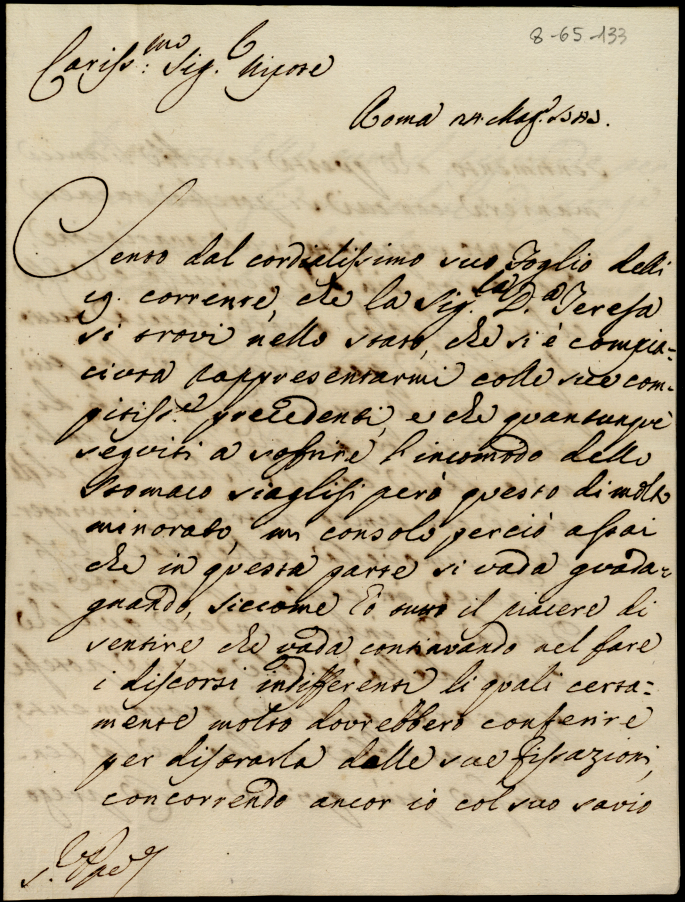 8-65-133
Cariss:mo Sig.e Nipote
Roma 24. Mag.o
Sento dal cordialissimo suo Foglio delli
19. corrente, che la Sig.ra D.a Teresa
si trovi nello stato, che si è compia-
ciuta rappresentarmi colle sue com-
pitiss.e precedenti, e che quantunque
seguiti a soffrire l'incomodo dello
stomaco siaglisi però questo di molto
minorato, mi consolo perciò assai
che in questa parte si vada guada-
gnando, siccome ho tutto il piacere di
sentire che vada continuando nel fare
i discorsi indifferenti li quali certa-
mente molto dovrebbero conferire
per distrarla dalle sue fissazioni,
concorrendo ancor io col suo savio